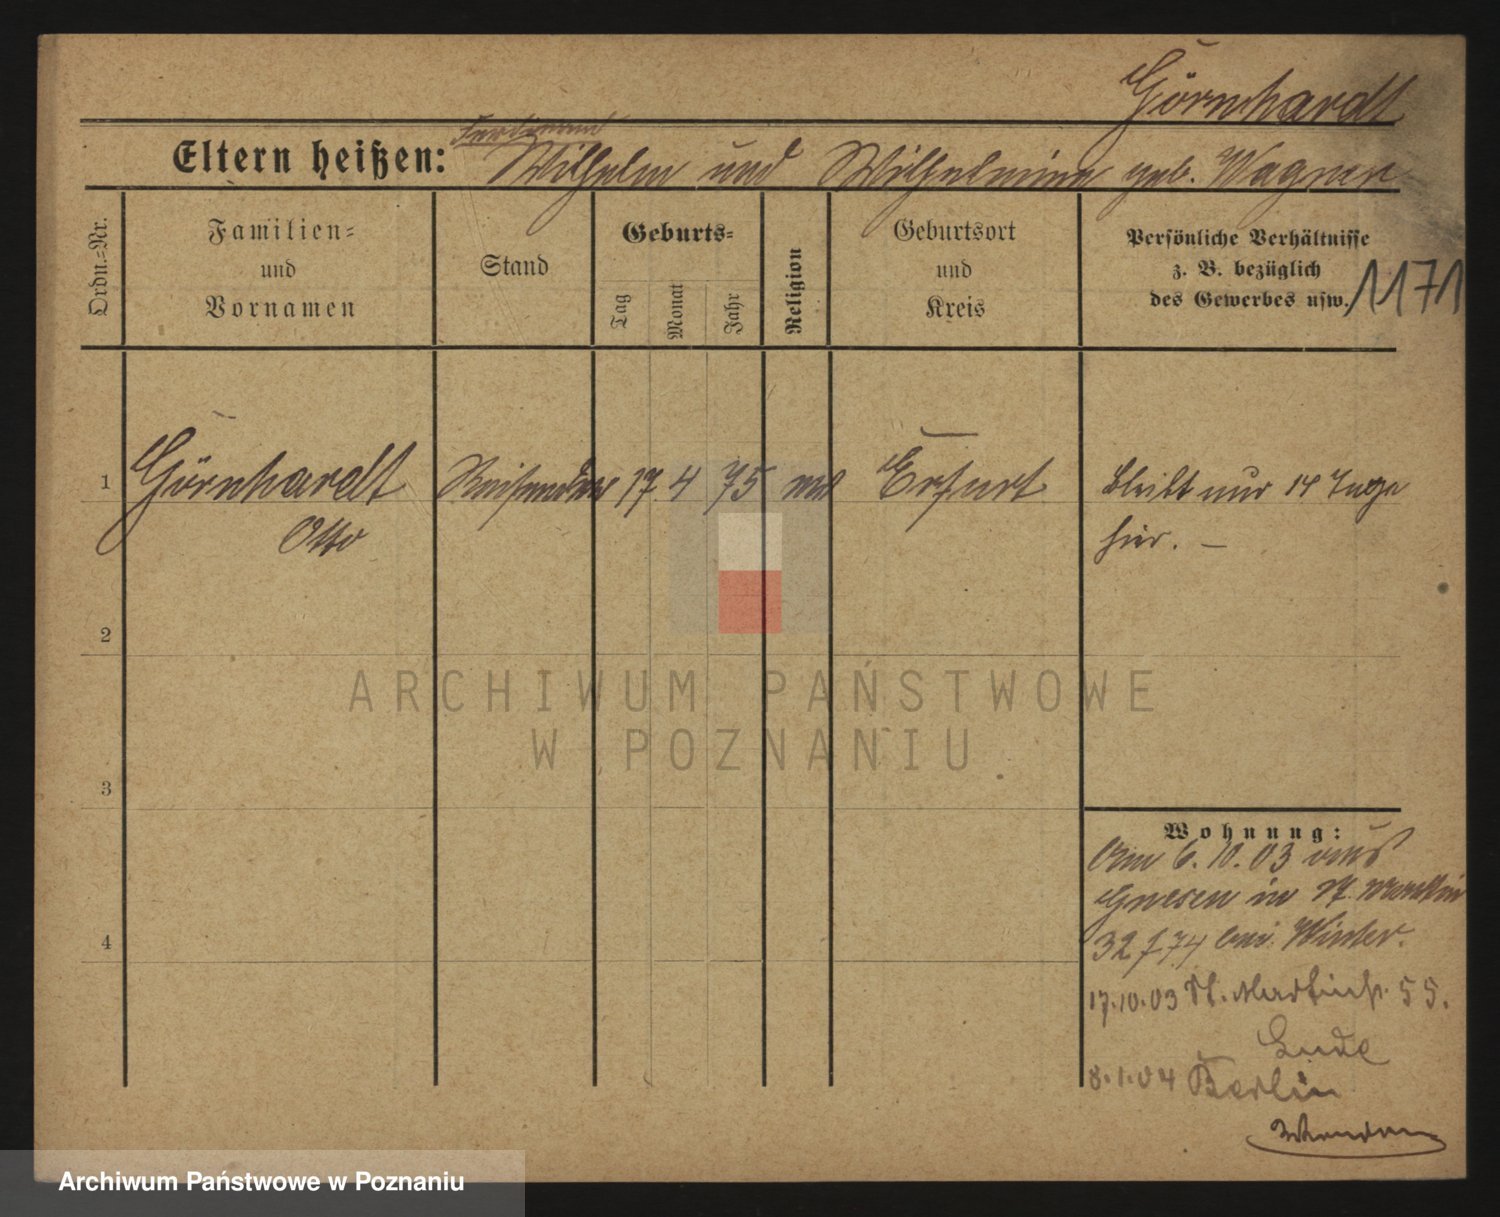 Görnhardt
Ferdinand
Eltern heißen: Wilhelm und Wilhelmine geb. Wagner
Ordn.-Nr.
Familien-
und
Vornamen
Stand
Geburts-
Tag
Monat
Jahr
Religion
Geburtsort
und
Kreis
Persönliche Verhältnisse
z. B. bezüglich
des Gewerbes usw.
1171
1 Görnhardt Reisender 17 4 75 Erfurt bleibt nur 14 Tage
Otto hier. –
2
3
4
Wohnung:
Am 6.10.03 aus
Gnesen in St. Martin
32 / 74 bei Winter.
17.10.03 St. Martinstr. 55.
Lude
8.1.04 Berlin
ARCHIWUM PAŃSTWOWE
W POZNANIU
Archiwum Państwowe w Poznaniu